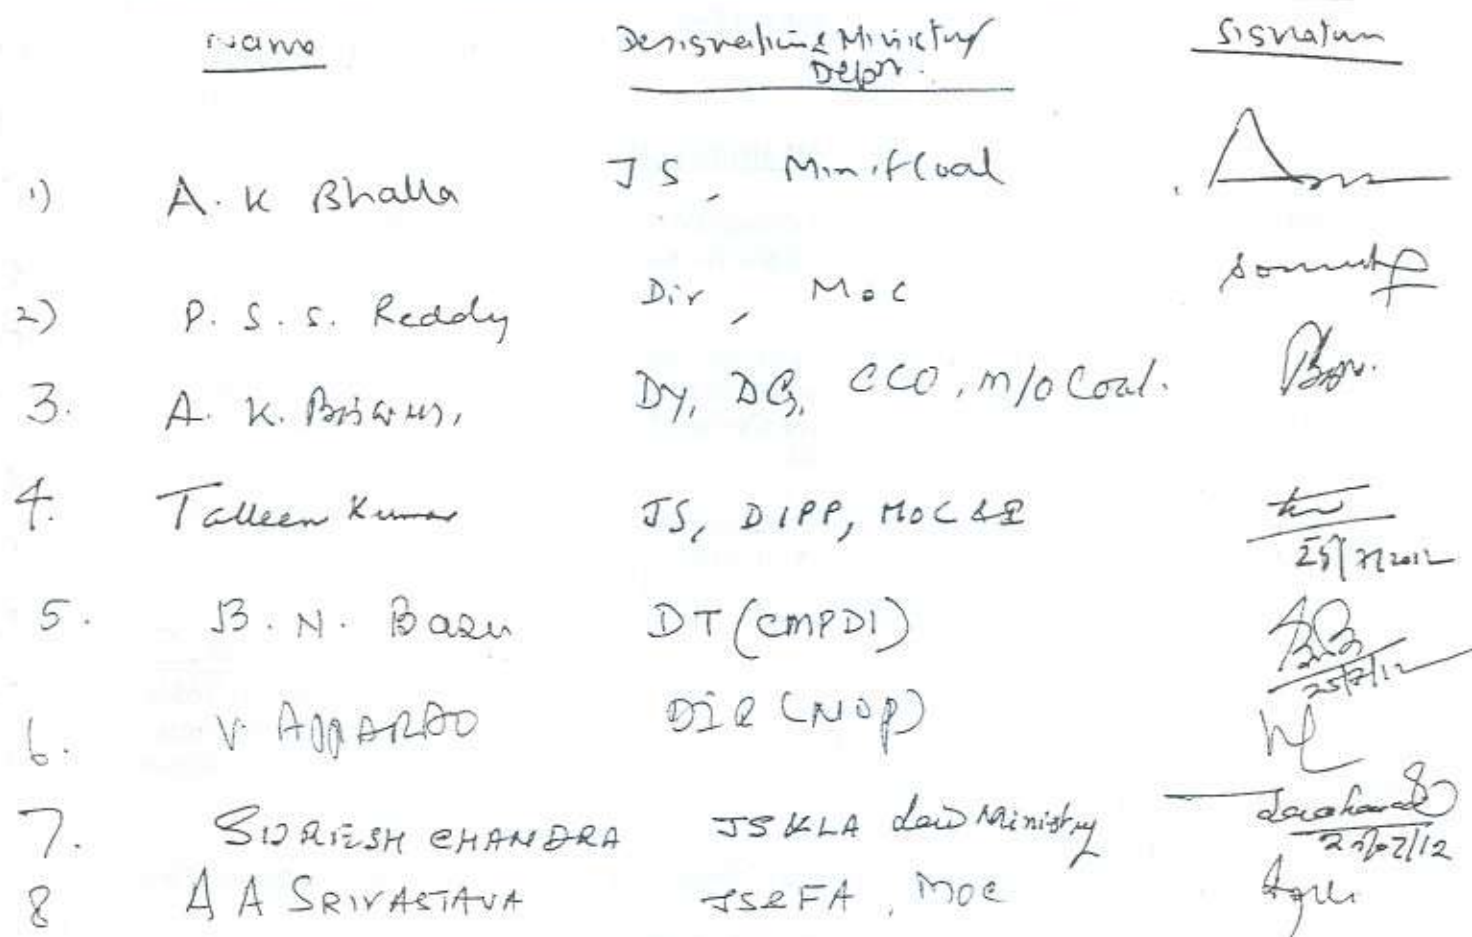 Name Designation & Ministry Signature
Deptt.
1) A. K Bhalla JS, Min. of Coal
2) P. S. S. Reddy Dir, MoC
3. A. K. Biswas, Dy, DG, CCO, M/o Coal.
4. Talleen Kumar JS, DIPP, MOC & I
25/7/2012
5. B. N. Basu DT (CMPDI)
25/7/12
6. V. APPARAO DIR (NOP)
7. SURESH CHANDRA JS & LA Law Ministry
25/07/12
8 A A SRIVASTAVA JS & FA, MOC